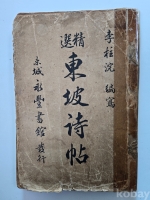 李柱浣 編寫
精選
東坡詩帖
京城 永豐書館 發行
kobay